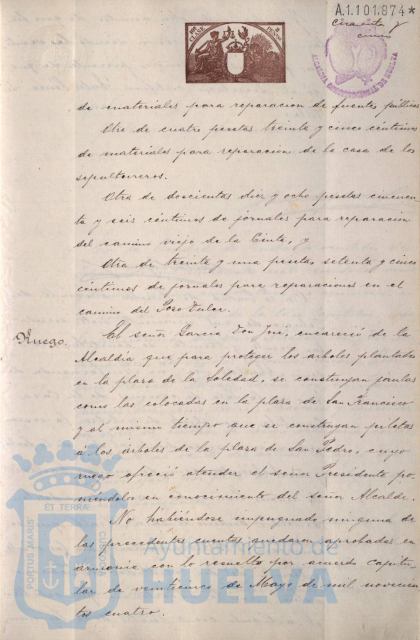 A.1.101.874*
cincuenta y
cinco
de materiales para reparacion de fuentes públicas
Otra de cuatro pesetas treinta y cinco céntimos
de materiales para reparación de la casa de los
sepultureros.
Otra de doscientas diez y ocho pesetas cincuen-
ta y seis céntimos de jornales para reparación
del camino viejo de la Cinta, y
Otra de treinta y una pesetas, setenta y cinco
céntimos de jornales para reparaciones en el
camino del Pozo Dulce.
Ruego.
El señor García Don José, encareció de la
Alcaldía que para proteger los árboles plantados
en la plaza de la Soledad, se construyan jaulas
como las colocadas en la plaza de San Francisco
y al mismo tiempo que se construyan
a los árboles de la plaza de San Pedro, cuyo
ruego ofreció atender el señor Presidente po-
niéndolo en conocimiento del señor Alcalde.
No habiéndose impugnado ninguna de
las precedentes cuentas quedaron aprobadas en
armonía con lo resuelto por acuerdo capitu-
lar de veinticinco de Mayo de mil novecien-
tos cuatro.
PORTUS MARIS
ET TERRÆ
Ayuntamiento de
HUELVA